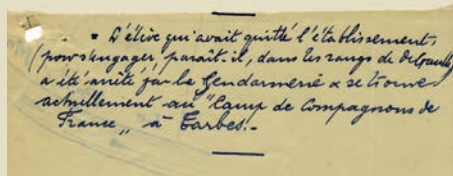 " L'élève qui avait quitté l'établissement,
(pour s'engager, paraît-il, dans les rangs de de Gaulle)
a été arrêté par la Gendarmerie & se trouve
actuellement au "Camp de Compagnons de
France" à Tarbes.-